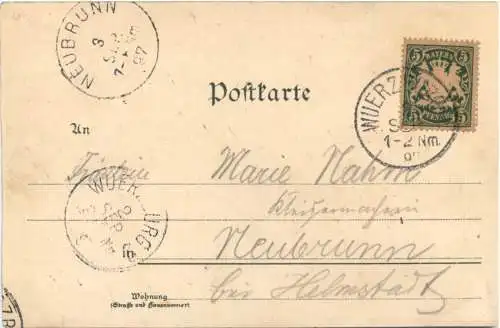 NEUBRUNN
3
SEP
1-2 Nm
97
BAYERN
5 5
5 5
PFENNIG
WUERZ
SEP
1-2 Nm.
97
Postkarte
An
Fräulein Marie
WUERZBURG
in Neubrunn
bei Helmstadt
Wohnung
(Straße und Hausnummer)